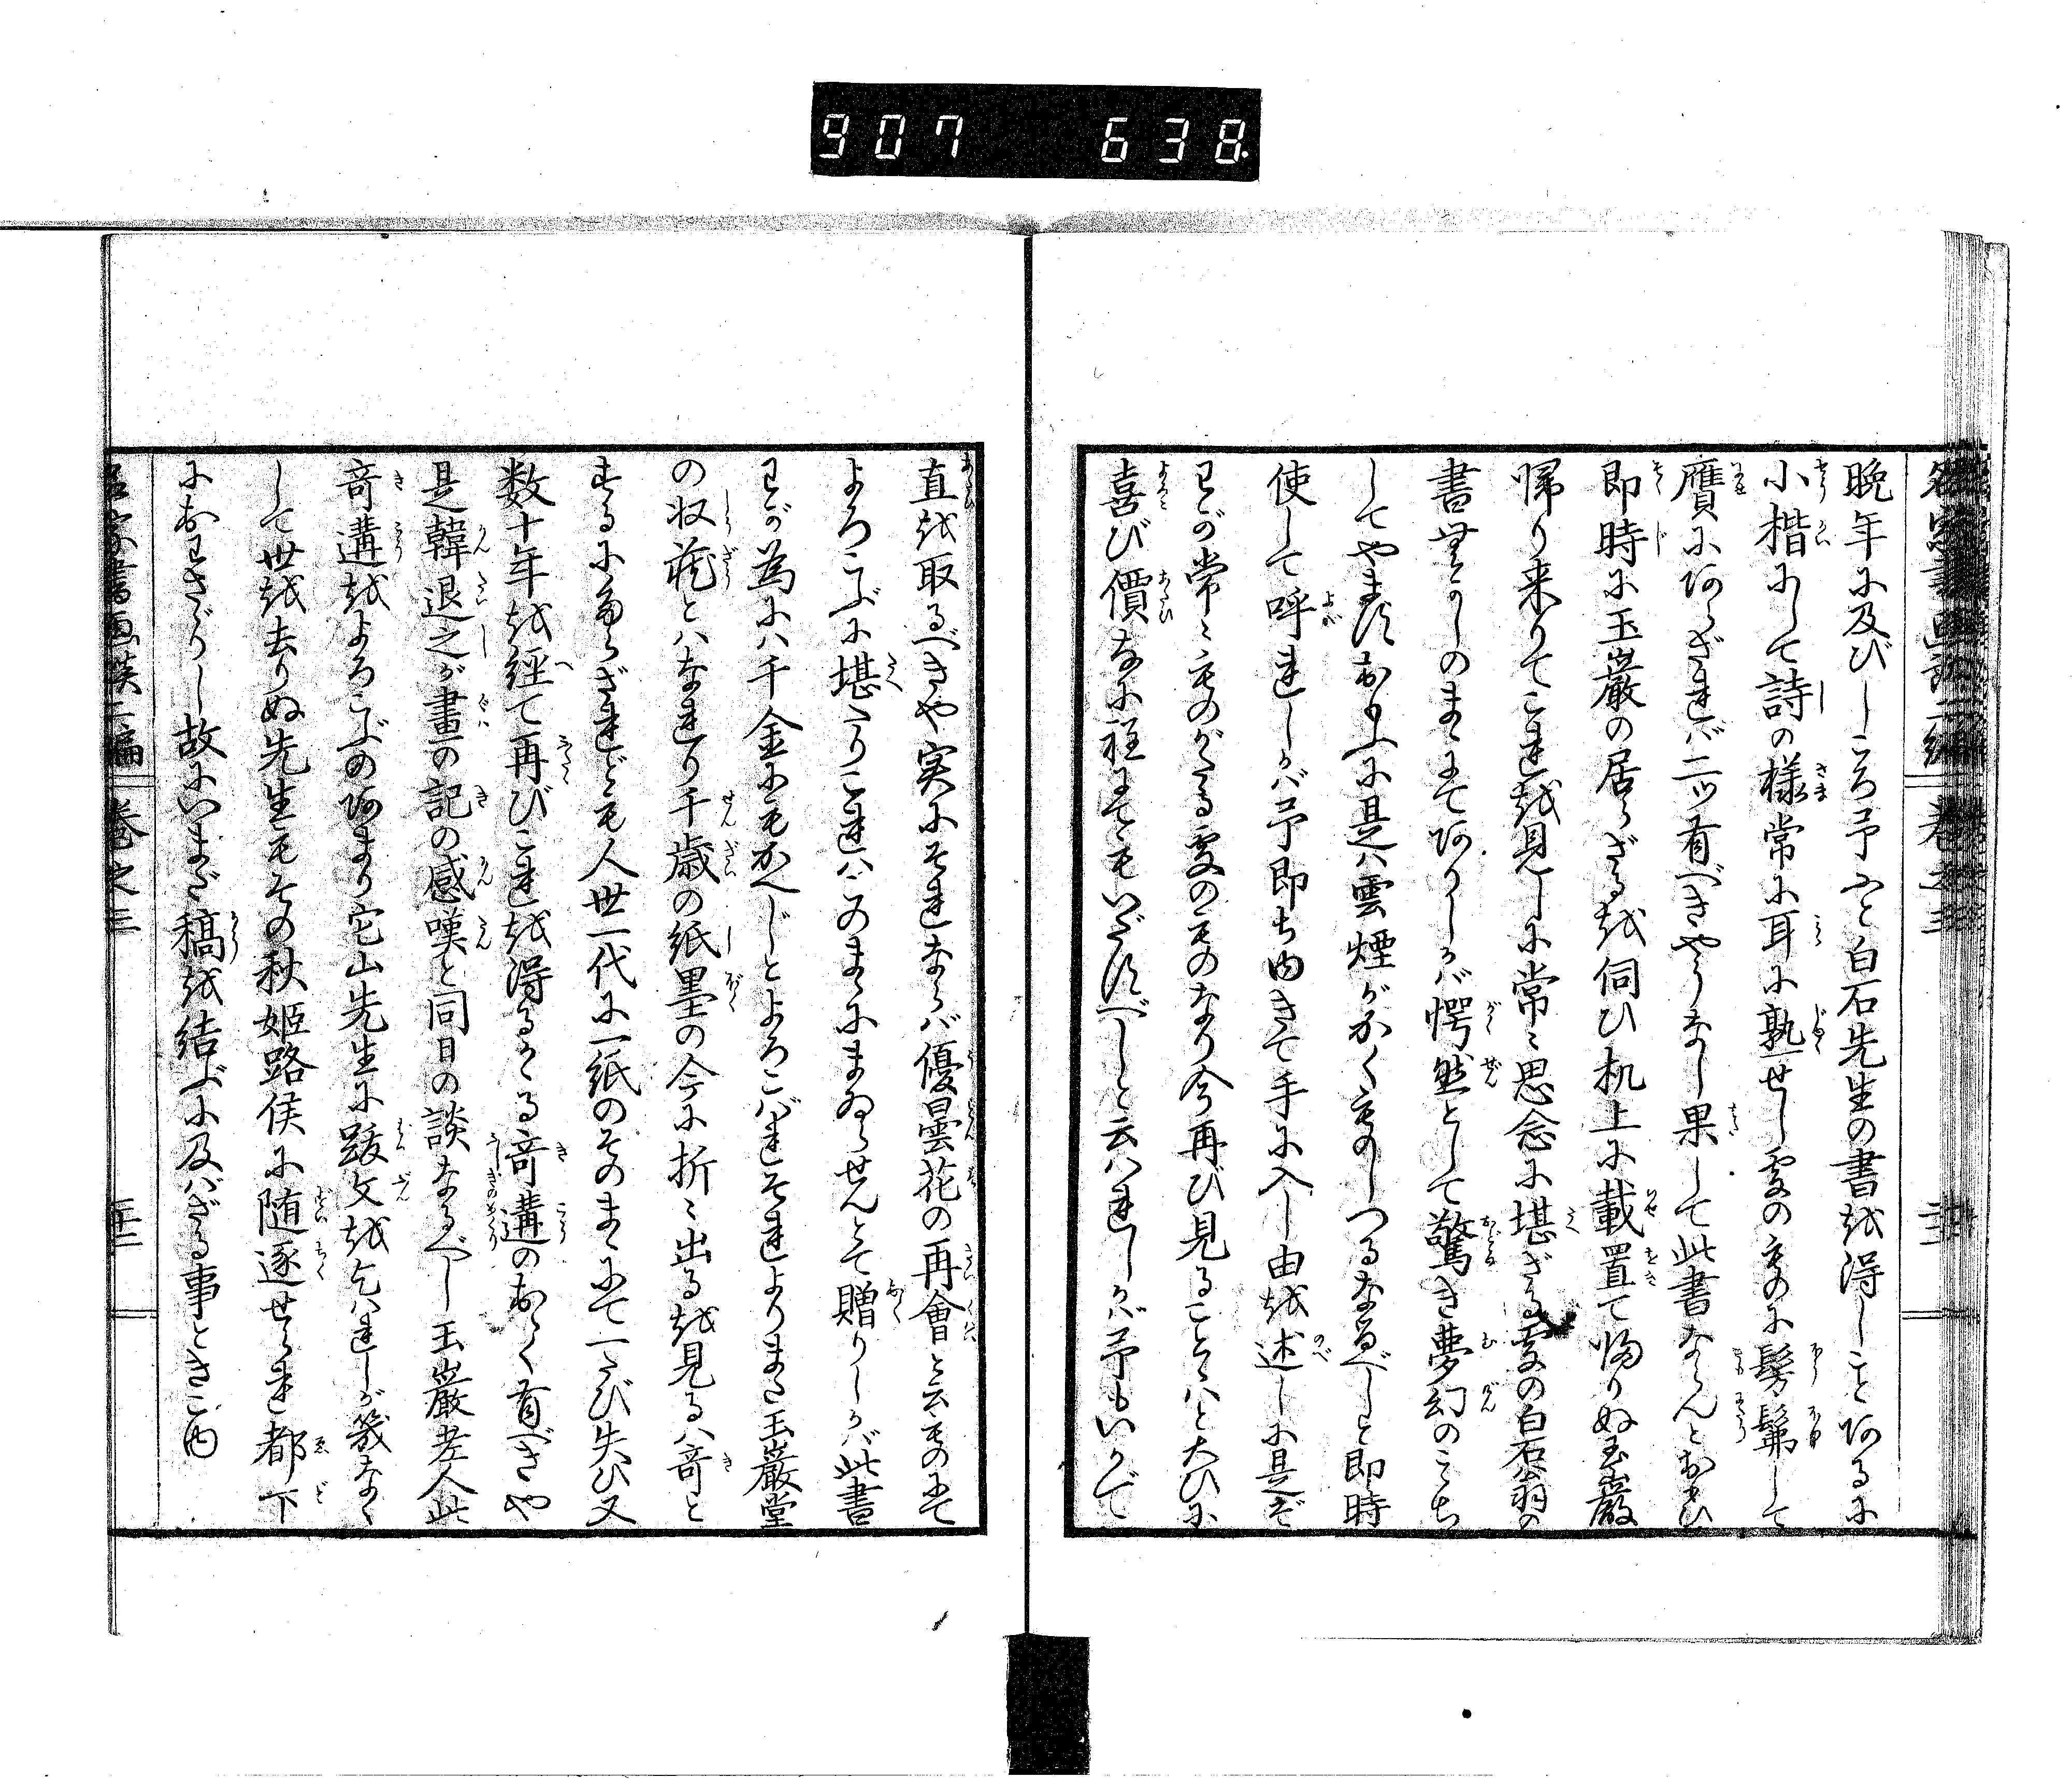 907 638
名家書画談二編 巻之三
晩年に及びしころ予ふと白石先生の書を得しことあるに
小楷にして詩の様常に耳に熟せし處のものに髣髴して
贋にあらざれバ二ッ有べきやうなし果して此書ならんとおもひ
即時に玉巖の居らざるを伺ひ机上に載置て帰りぬ玉巖
帰り来りてこれを見しに常々思念に堪ざる處の白石翁の
書むかしのまゝにてありしかバ愕然として驚き夢幻のこゝち
してやまずおもふに是ハ雲煙がかくものしつるなるべしと即時
使して呼れしかバ予即ち由きて手に入し由を述しに是ぞ
わが常々ものがたる處のものなり今再び見ることハと大ひに
喜び價なに程にてもいだすべしと云ハれしかバ予もいかで
直を取るべきや実にそれならバ優曇花の再會と云ものにて
よろこぶに堪たりこれハこのまゝにまゐらせんとて贈りしかバ此書
わが為にハ千金にもかへじとよろこバれそれよりまた玉巖堂
の収蔵とハなれり千歳の紙墨の今に折々出るを見るハ竒と
するに足らざれども人世一代に一紙のそのまゝにて一たび失ひ又
数十年を經て再びこれを得るかゝる竒遘のおゝく有べきや
是韓退之が畫の記の感嘆と同日の談なるべし玉巖老人此
竒遘をよろこぶのあまり它山先生に跋文を乞ハれしが幾なく
して世を去りぬ先生もその秋姫路侯に随逐せられ都下
におわさゞりし故にいまだ稿を結ぶに及バざる事ときこゆ
名家書画談二編 巻之三